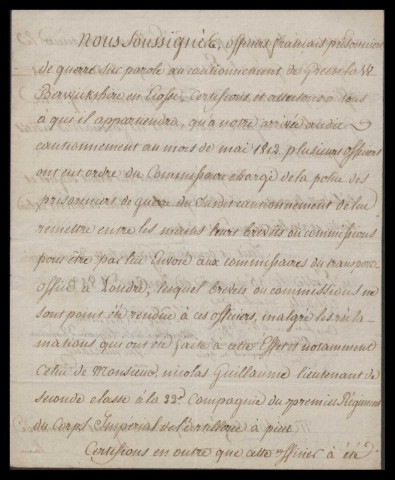 Nous soussignés, officiers français prisonniers
de guerre sur parole au cautionnement de Greenlaw
Berwickshire en Ecosse, Certifions et attestons à tous
à qui il appartiendra, qu'a notre arrivée audit
cautionnement au mois de mai 1812 plusieurs officiers
ont eut ordre du Commissaire chargé de la police des
prisonniers de guerre du susdit cautionnement de lui
remettre entre les mains leurs brevets ou commissions
pour être par lui Envoié aux commissaires du transport
office à Londre, lequel brevets ou commissions ne
sont point été rendue à ces officiers, malgré les récla
mations qui ont été faite à cette Effet et notamment
Celui de Monsieur, nicolas Guillaume lieutenant de
seconde classe à la 22.e Compagnie du premier Régiment
du Corps Imperial de l'artillerie à pied
Certifions en outre que cette officier à été